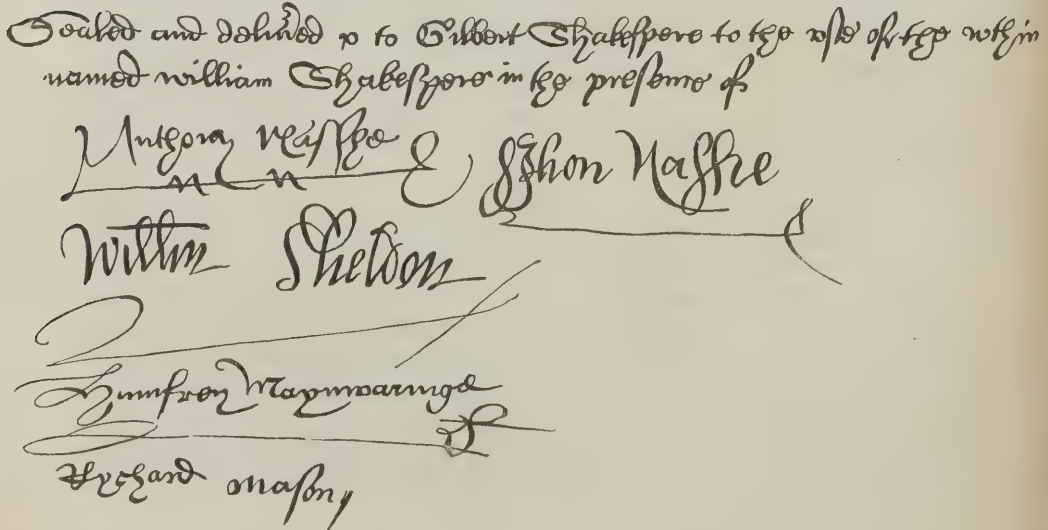 Sealed and deliũed to Gilbert Shakespere to the vse of the wthin
named william Shakespere in the presence of
Anthony Nasshe Jhon Nashe
Willm Sheldon
Humfrey Maynwaringe
Rychard Mason